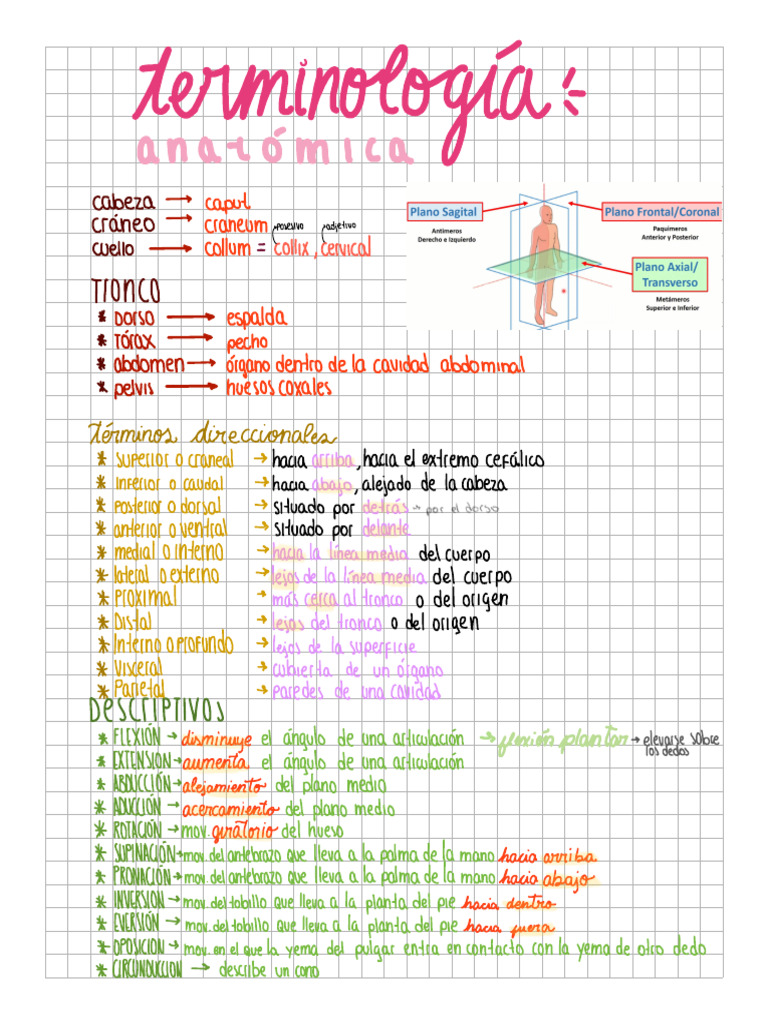 terminología
anatómica
cabeza → caput
cráneo → craneum
posesivo adjetivo
cuello → collum = collix, cervical
Plano Sagital
Antímeros
Derecho e Izquierdo
Plano Frontal/Coronal
Paquímeros
Anterior y Posterior
Plano Axial/
Transverso
Metámeros
Superior e Inferior
Tronco
* Dorso → espalda
* Tórax → pecho
* abdomen → órgano dentro de la cavidad abdominal
* pelvis → huesos coxales
términos direccionales
* superior o craneal → hacia arriba, hacia el extremo cefálico
* inferior o caudal → hacia abajo, alejado de la cabeza
* posterior o dorsal → situado por detrás → por el dorso
* anterior o ventral → situado por delante
* medial o interno → hacia la línea media del cuerpo
* lateral o externo → lejos de la línea media del cuerpo
* Proximal → más cerca al tronco o del origen
* Distal → lejos del tronco o del origen
* Interno o profundo → lejos de la superficie
* Visceral → cubierta de un órgano
* Parietal → paredes de una cavidad
DESCRIPTIVOS
* FLEXIÓN → disminuye el ángulo de una articulación → flexión plantar → elevarse sobre
los dedos
* EXTENSION → aumenta el ángulo de una articulación
* ABDUCCIÓN → alejamiento del plano medio
* ADUCCIÓN → acercamiento del plano medio
* ROTACIÓN → mov. giratorio del hueso
* SUPINACIÓN → mov. del antebrazo que lleva a la palma de la mano hacia arriba
* PRONACIÓN → mov. del antebrazo que lleva a la palma de la mano hacia abajo
* INVERSION → mov. del tobillo que lleva a la planta del pie hacia dentro
* EVERSIÓN → mov. del tobillo que lleva a la planta del pie hacia fuera
* OPOSICION → mov. en el que la yema del pulgar entra en contacto con la yema de otro dedo
* CIRCUNDUCCION → describe un cono